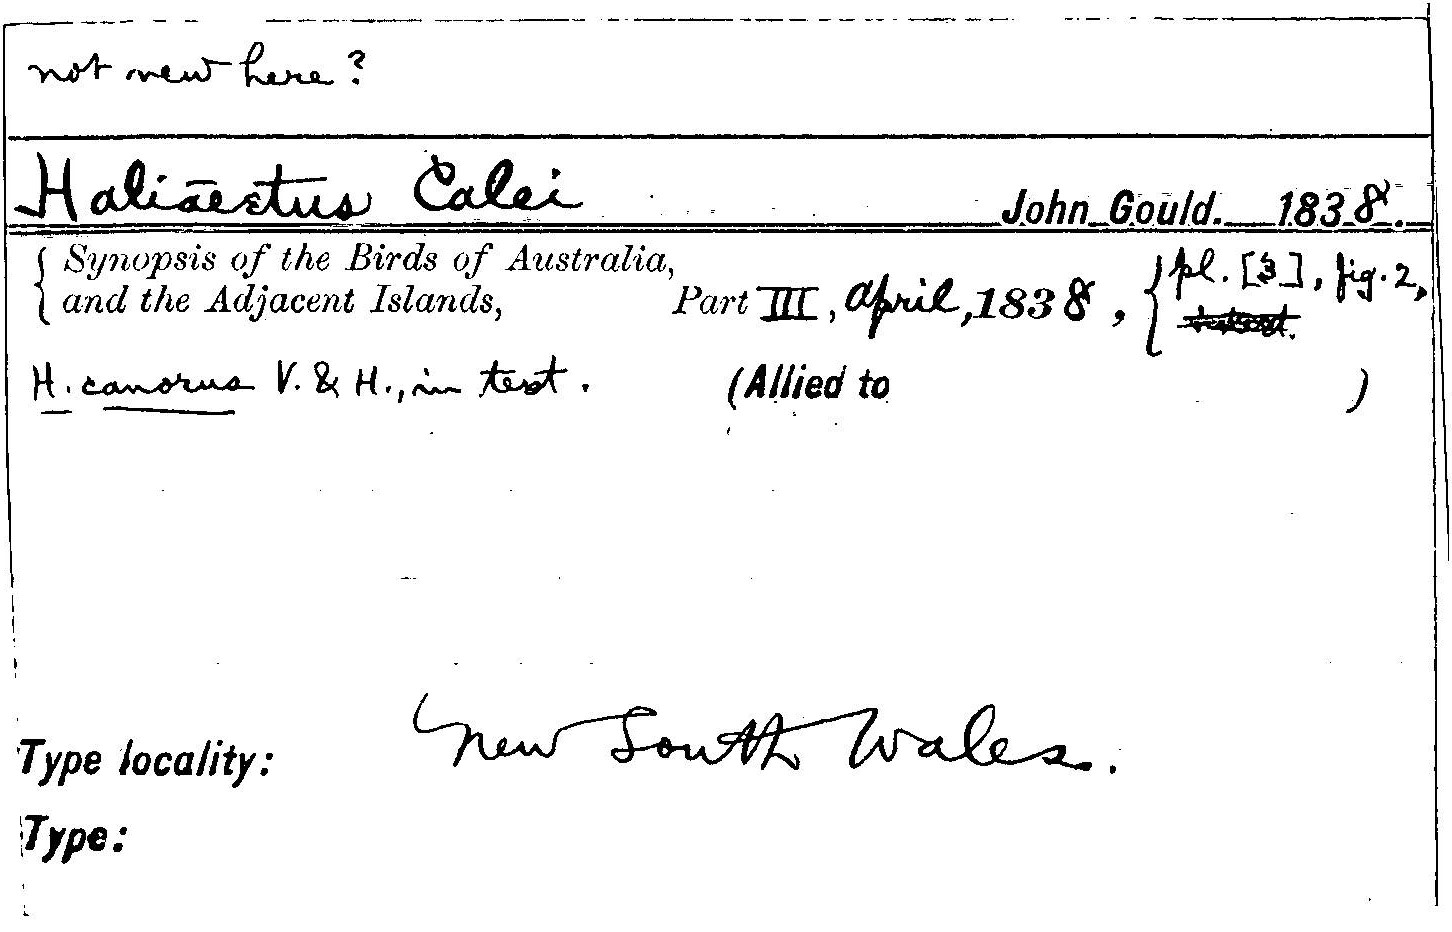 not new here?
Haliaeetus Calei John Gould. 1838.
Synopsis of the Birds of Australia,
and the Adjacent Islands, Part III, April, 1838, pl. [3], fig. 2,
H. canorus V. & H., in text. (Allied to )
Type locality: New South Wales.
Type: